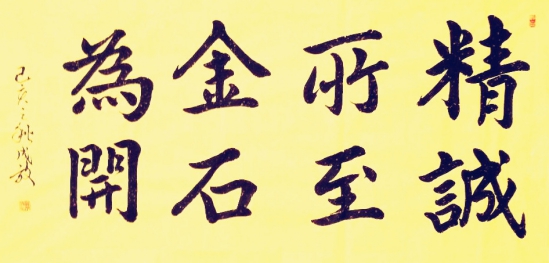 精誠
所至
金石
為開
己亥